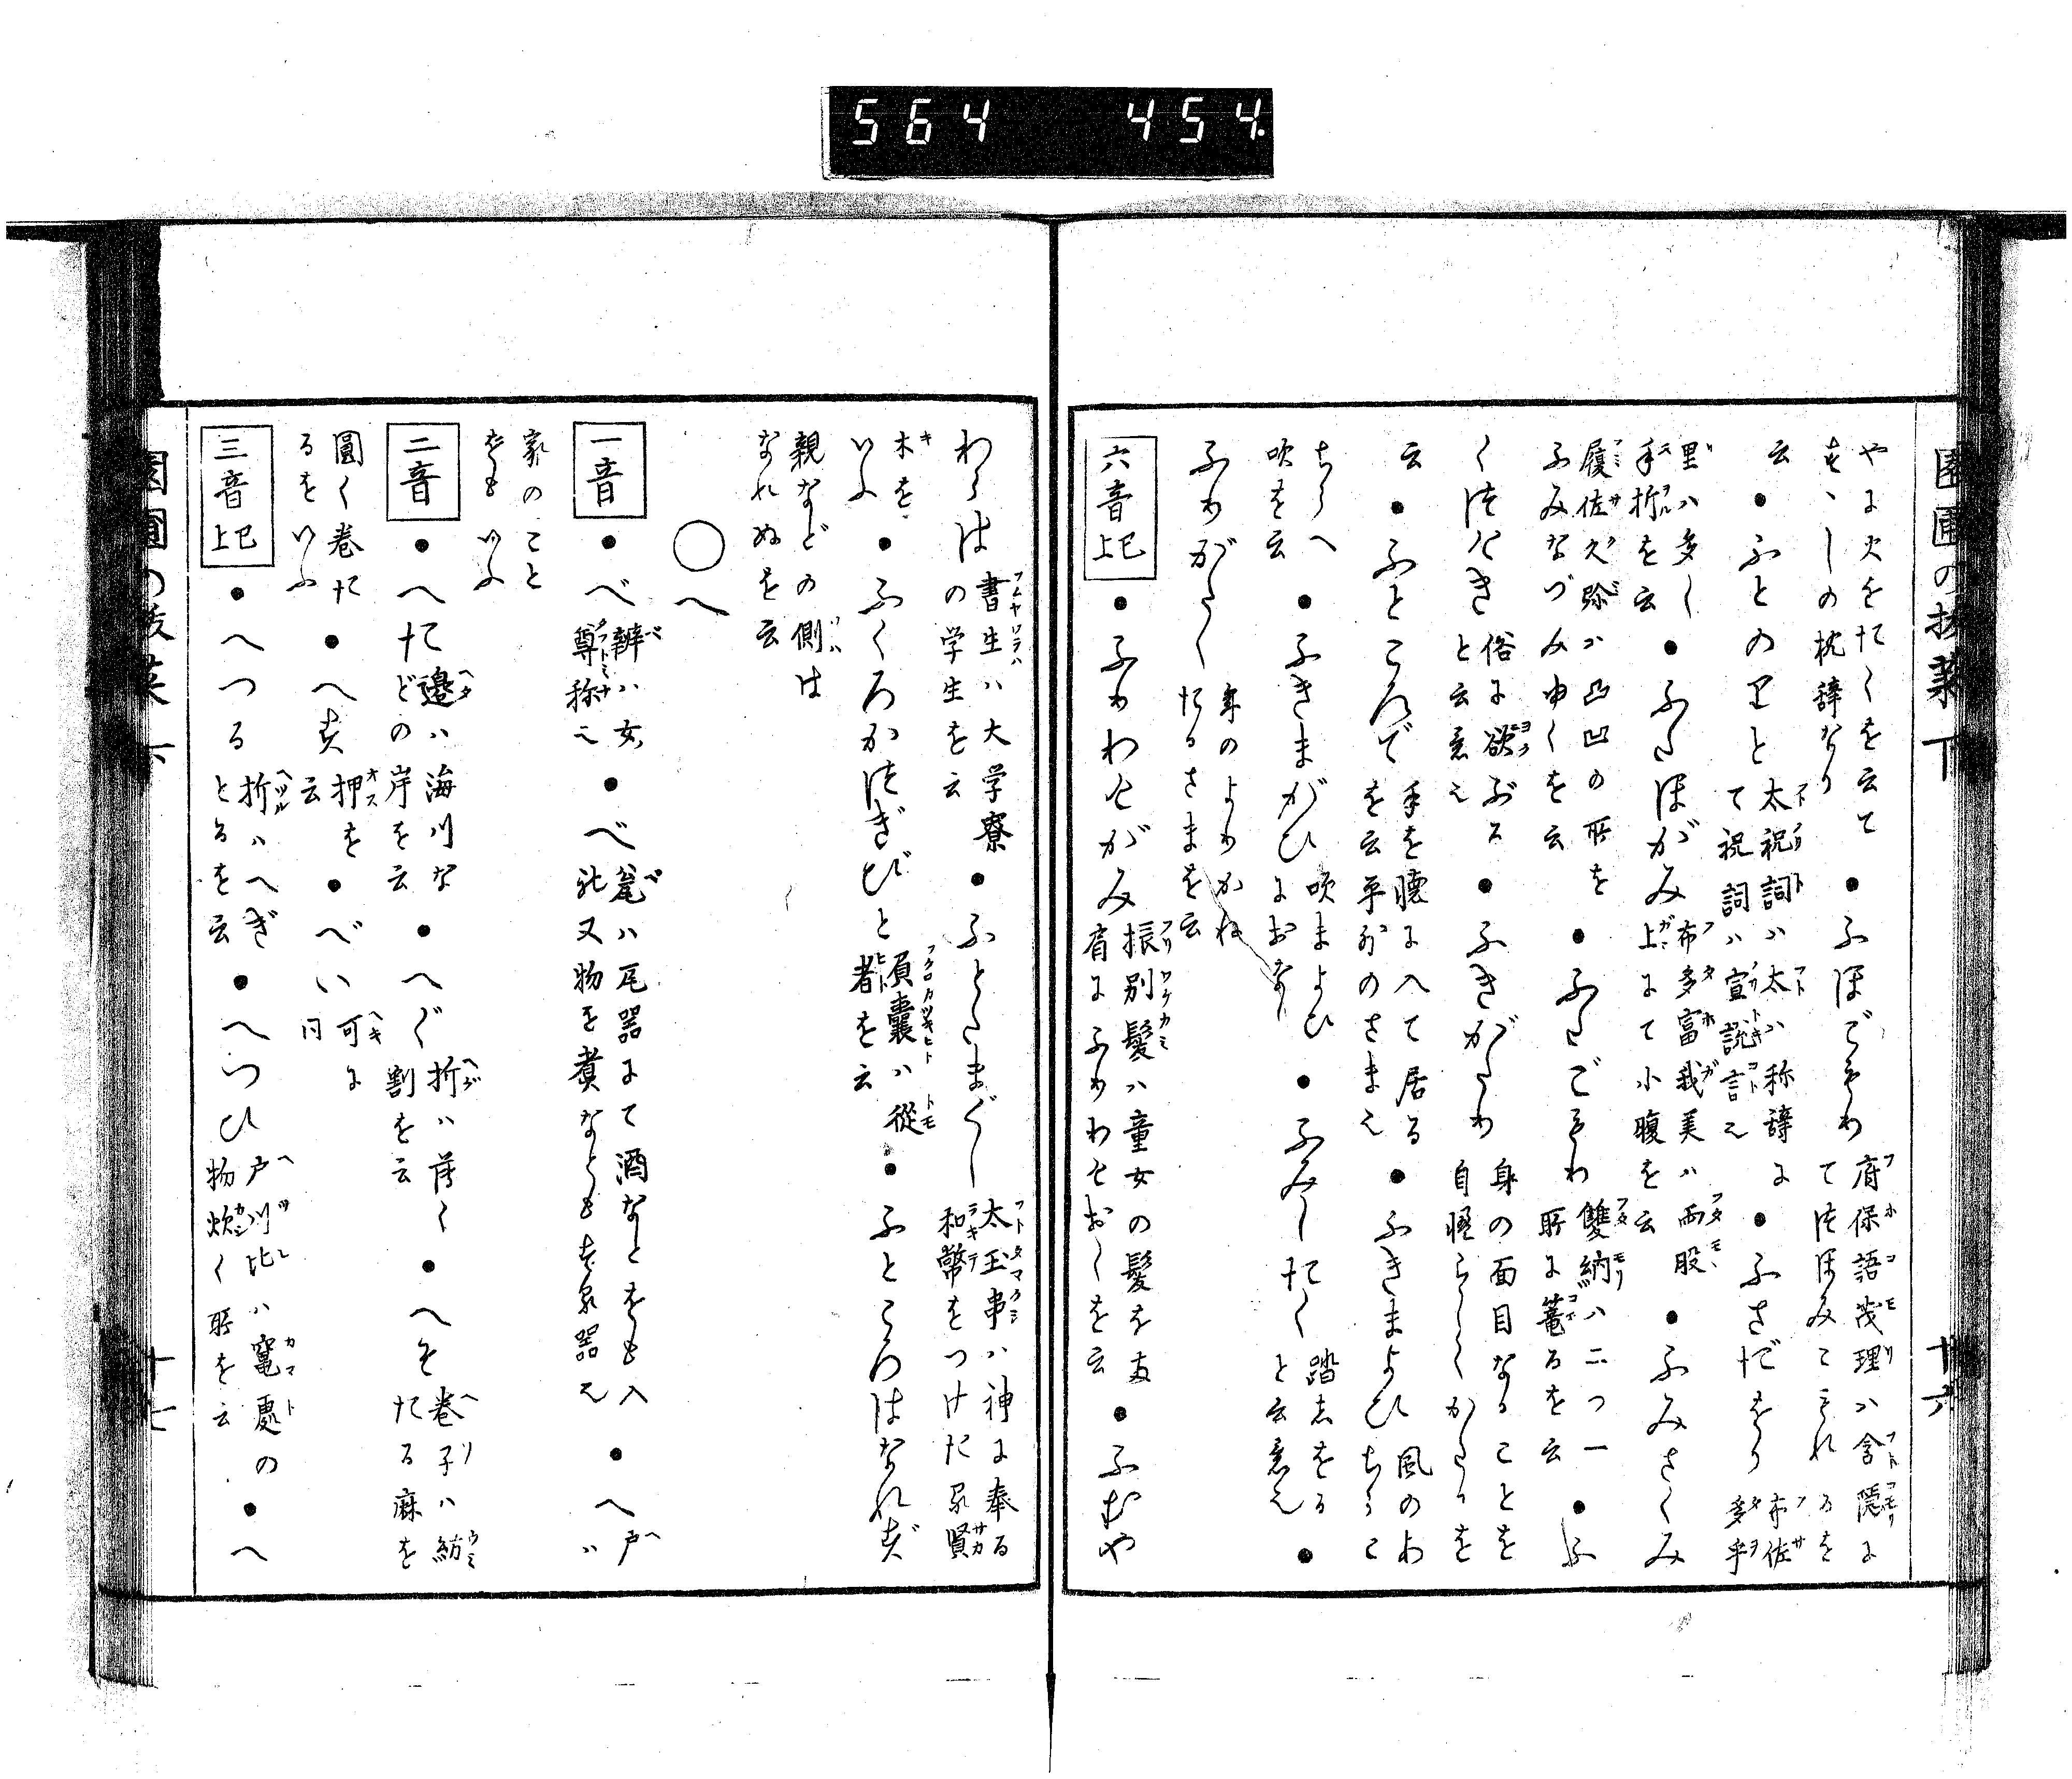 564 454.
園圃の抜菜 下 十六
やに火をたくを云て ●ふほごもり 府保語茂理ハ含隠に
もゝしの枕辞なり てほほみこもれるを
云 ●ふとのりと 太祝詞ハ太ハ称辞に
て祝詞ハ宣説言也 ●ふさたをり 布佐多乎
里ハ多く
手折を云 ●ふたほがみ 布多富我美ハ両股
上にて小腹を云 ●ふみさくみ
履佐久弥ハ凸凹の所を
ふみなづみ由くを云 ●ふたごもり 雙納ハ二つ一
所に篭るを云 ●ふ
くつけき 俗に欲ぶか
と云意也 ●ふきがたり 身の面目なることを
自慢らしくかたるを
云 ●ふところで 手を腰に入て居る
を云平がのさま也 ●ふきまよひ 風のあ
ちらこ
ちらへ
吹を云 ●ふきまがひ 吹まよひ
におなし ●ふみしたく 踏しをる
と云意也 ●
ふりがたく 身のよわかね
たるさまを云
六音 已上 ●ふりわけがみ 振別髪ハ童女の髪を
肩にふりわけおくを云 ●ふむや
わらは 書生ハ大学寮
の学生を云 ●ふとたまぐし 太玉串ハ神に奉る
和幣をつけた
木を
いふ ●ふくろかつぎびと 負嚢ハ従
者を云 ●ふところはなれず
親などの側は
なれぬを云
○へ
一音 ●べ 辨ハ女
尊称也 ●べ 瓮ハ瓦器にて酒なとをも入
又物を煮なとも 器也 ●へ 戸ハ
家のこと
をも いふ
二音 ●へた 邉ハ海川な
どの岸を云 ●へぐ 折ハ薄く
割を云 ●へそ 巻子ハ紡
たる麻を
圓く巻た
るをいふ ●へす 押を
云 ●べい 可に
同
三音 已上 ●へつる 折ハへぎ
とるを云 ●へつひ 戸川比ハ竃處の
物炊く所を云 ●へ
園圃の 菜 下 十七